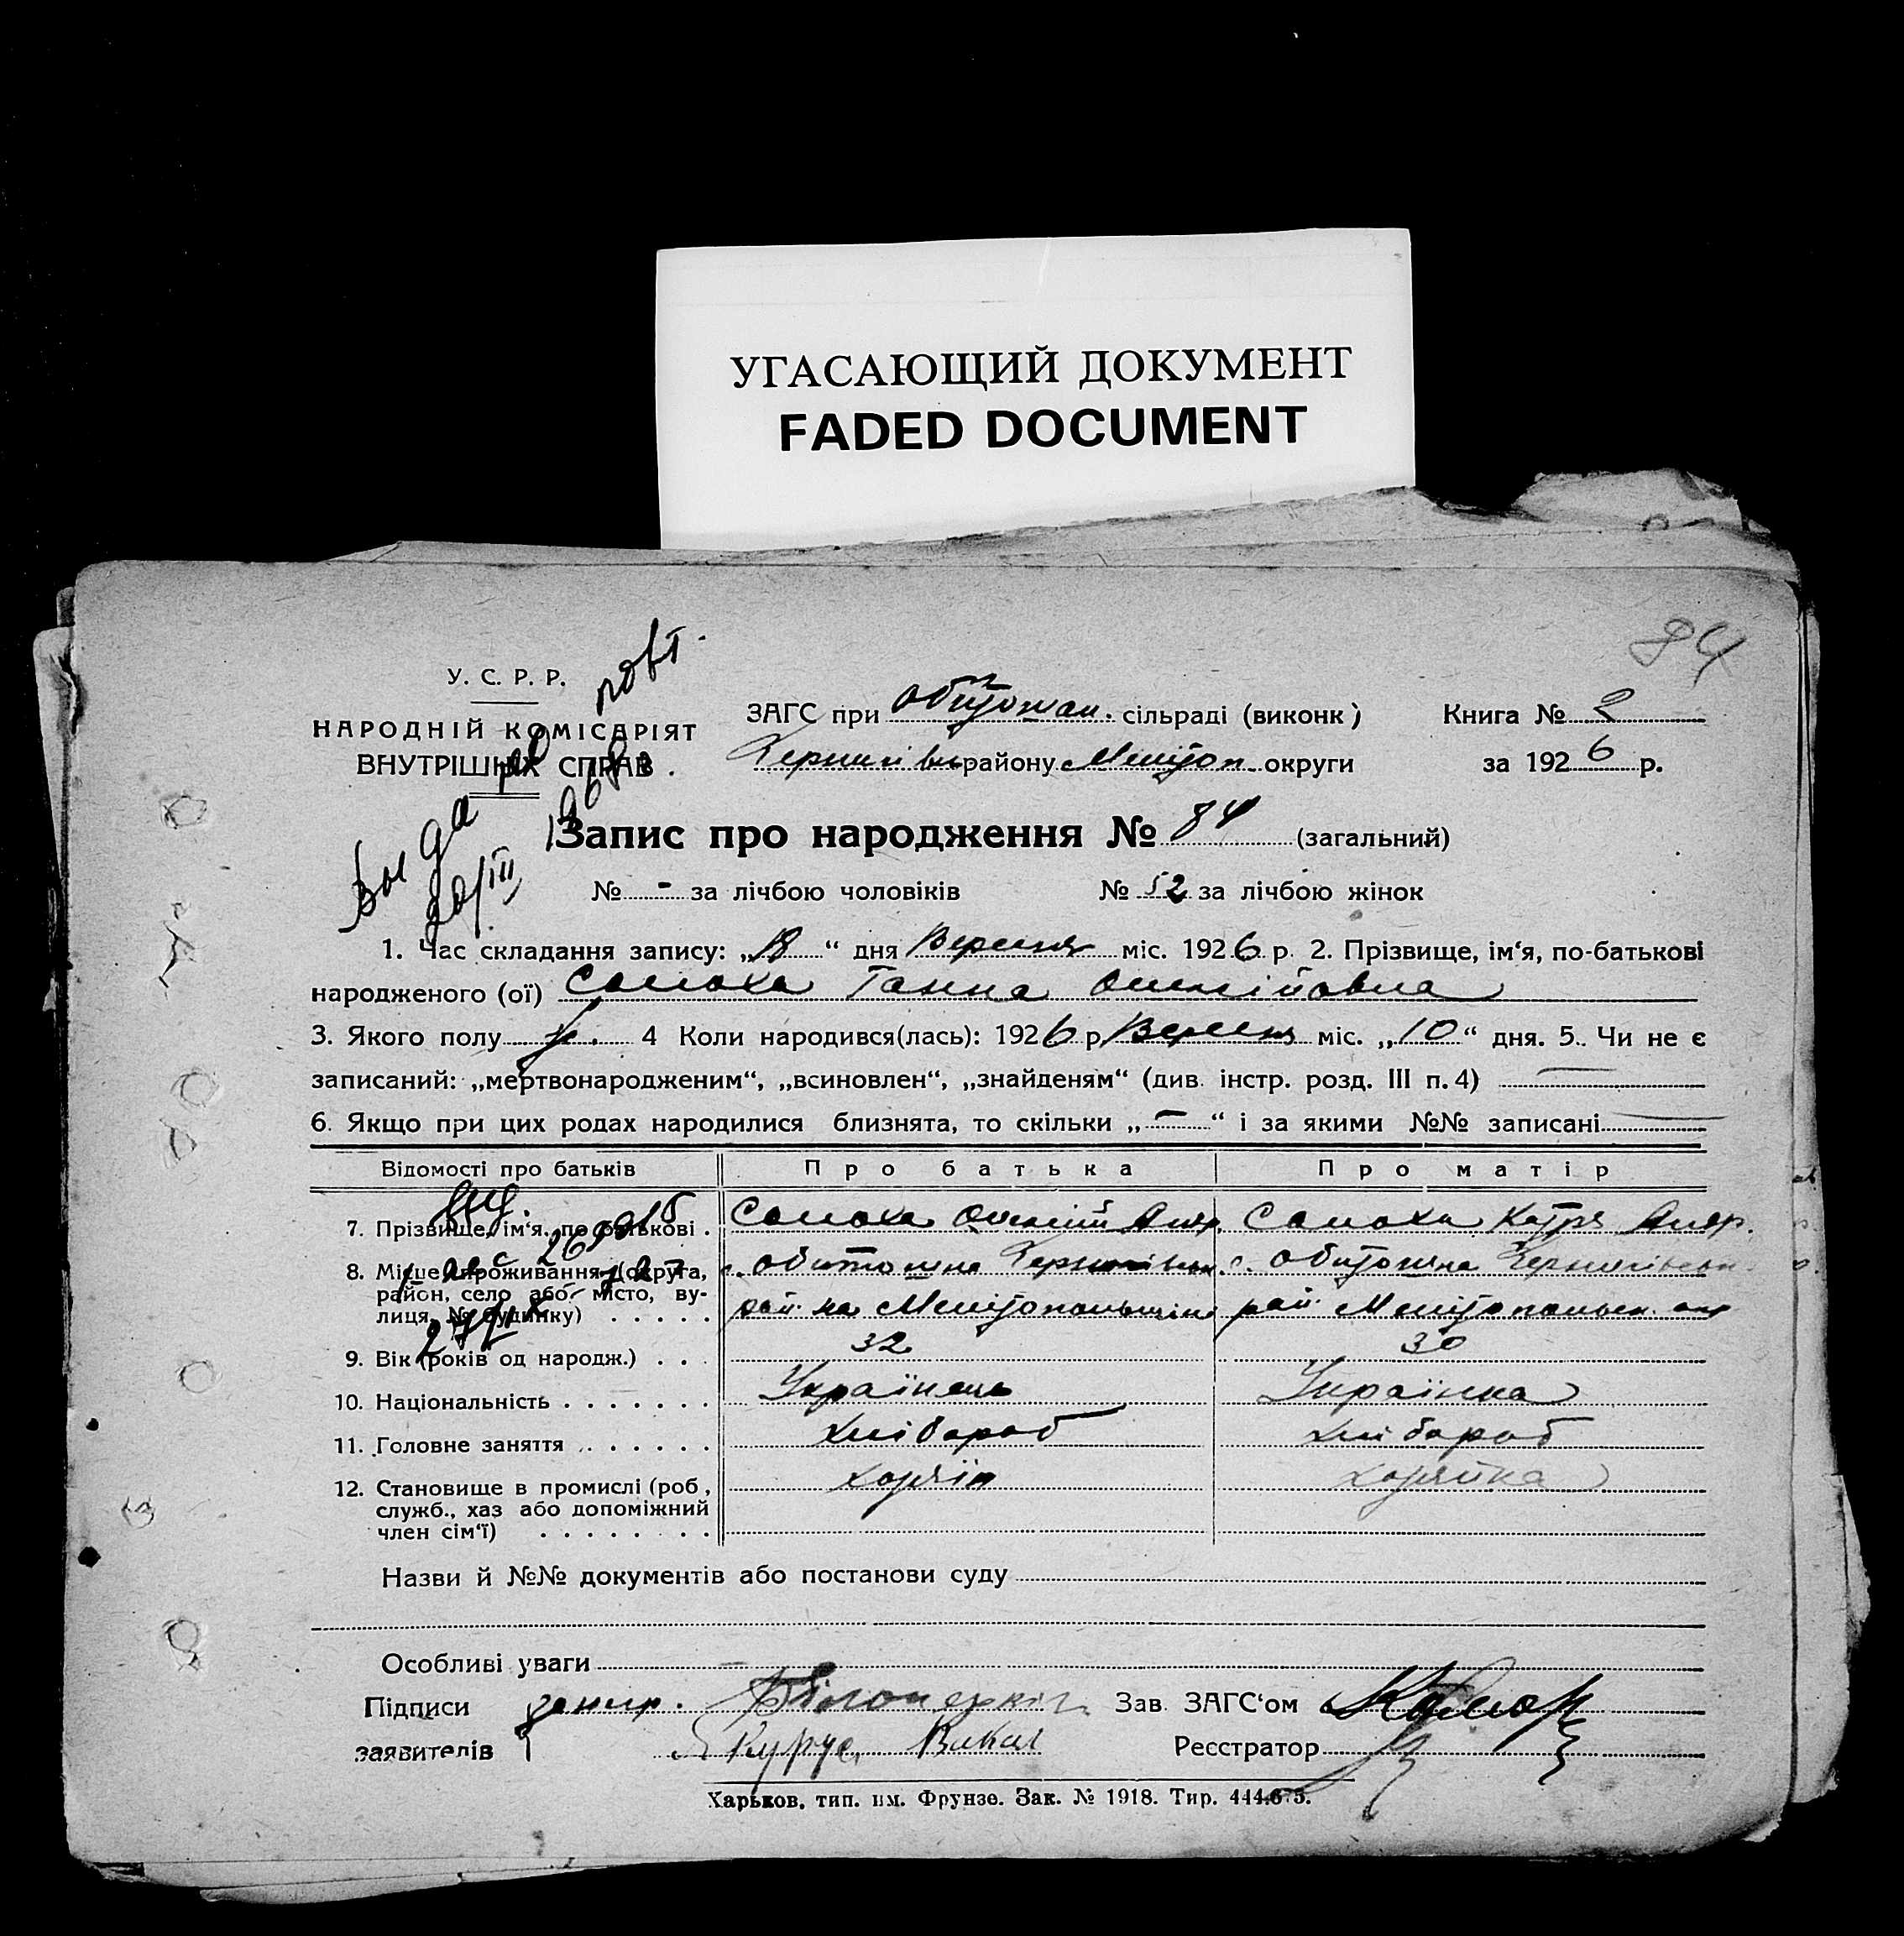 УГАСАЮЩИЙ ДОКУМЕНТ
FADED DOCUMENT
84
У. С. Р. Р.
НАРОДНІЙ КОМІСАРІЯТ
ВНУТРІШНІХ СПРАВ
повт.
ЗАГС при Обиточан. сільраді (виконк)
Книга № 2
Чернигівськ району Мелітоп. округи
за 1926 р.
Запис про народження № 84 (загальний)
№ - за лічбою чоловіків № 52 за лічбою жінок
1. Час складання запису: „18“ дня Вересня міс. 1926 р. 2. Прізвище, ім‘я, по-батькові
народженого (ої) Самоха Ганна Олексіївна
3. Якого полу ж. 4 Коли народився(лась): 1926 р Вересня міс. „10“ дня. 5. Чи не є
записаний: „мертвонародженим“, „всиновлен“, „знайденям“ (див. інстр. розд. III п. 4) —
6. Якщо при цих родах народилися близнята, то скільки „—“ і за якими №№ записані —
Відомості про батьків Про батька Про матір
7. Прізвище, ім‘я, по батькові . Самоха Олексій Андр. Самоха Катря Андр.
8. Місце проживання (округа, с. Обиточна Чернигівськ. с. Обиточна Чернигівськ.
район, село або місто, ву-
лиця, № будинку) . . . . . рай. на Мелітопольщині рай. Мелітопольск. окр
9. Вік (років од народж.) . . . 32 30
10. Національність . . . . . . . Українець Українка
11. Головне заняття . . . . . . Хлібороб Хлібороб
12. Становище в промислі (роб, хазяїн хазяйка
служб., хаз або допоміжний
член сім‘ї) . . . . . . . .
Назви й №№ документів або постанови суду
Особливі уваги
Підписи Зав. ЗАГС‘ом
заявителів Реєстратор
Харьков, тип. им. Фрунзе. Зак. № 1918. Тир. 444.675.